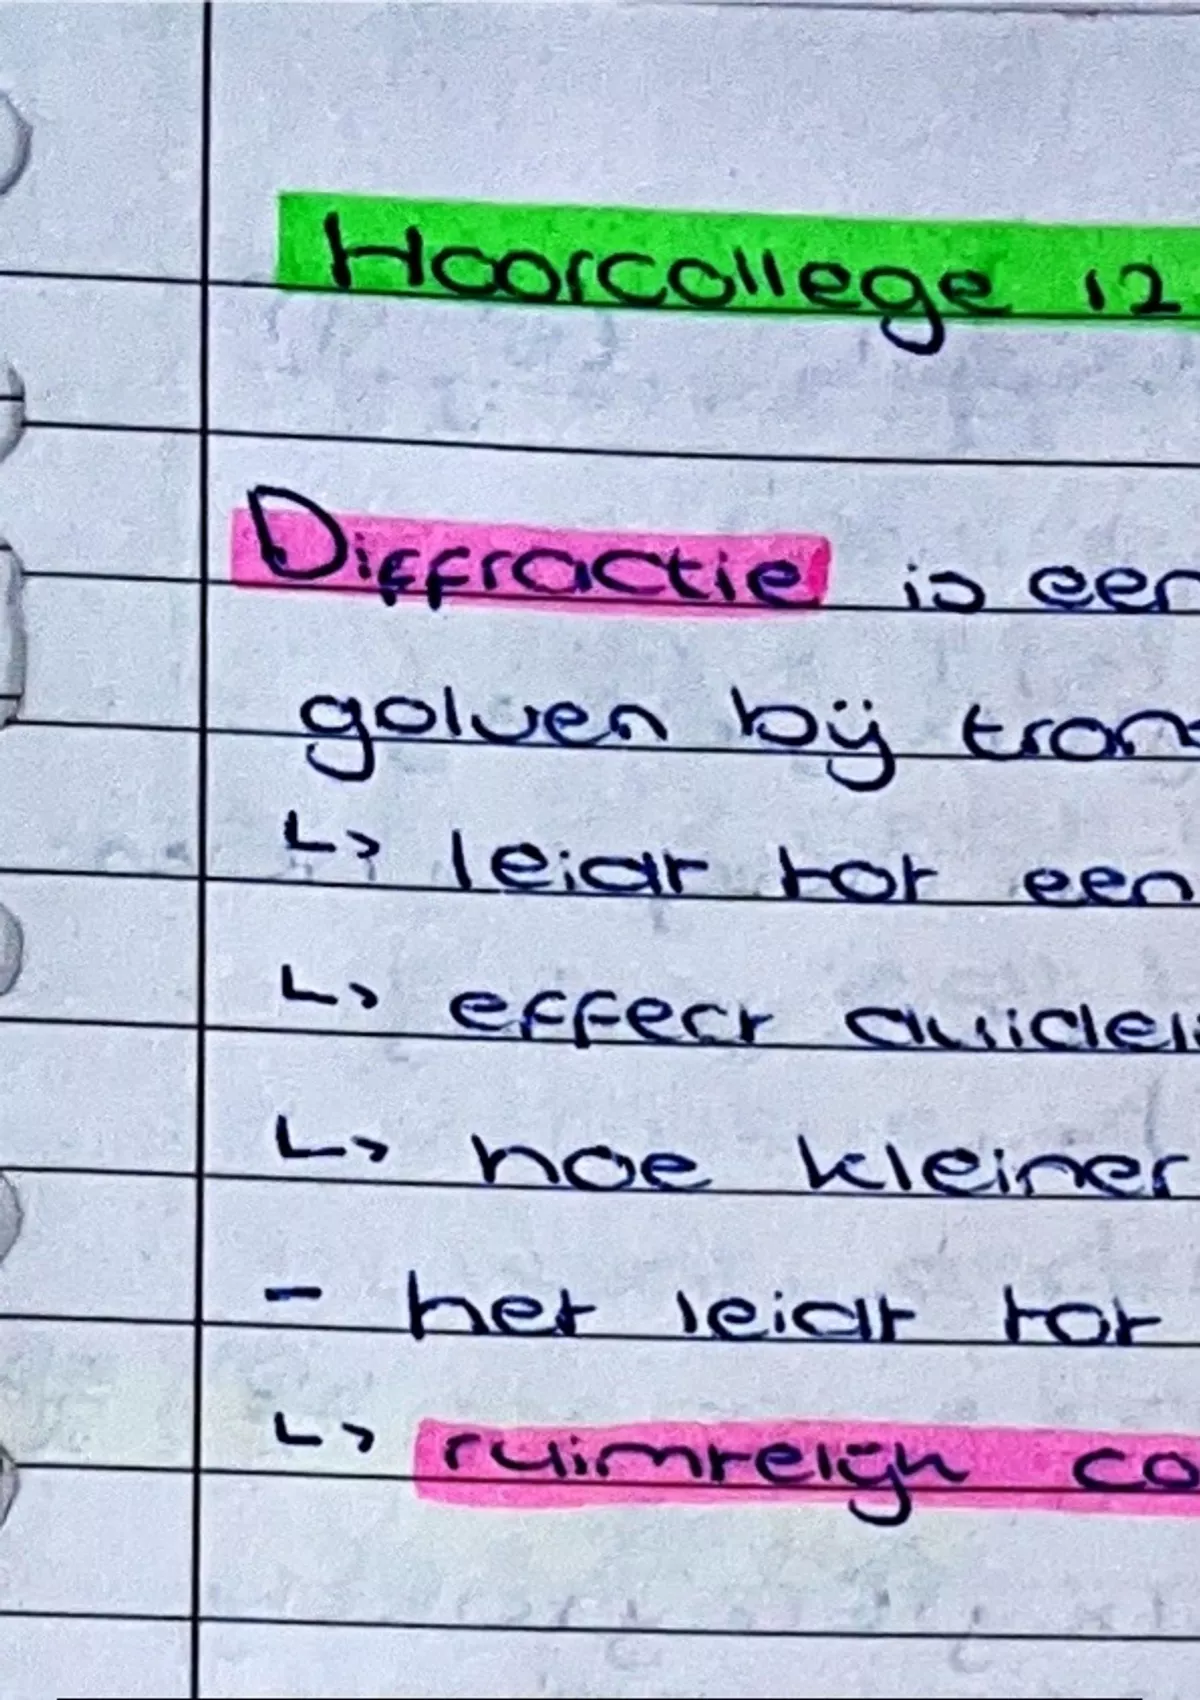 Hoorcollege 12
Diffractie is een
golven bij trans
↳ leidt tot een
↳ effect duideli
↳ hoe kleiner
- het leidt tot
↳ ruimtelijk co